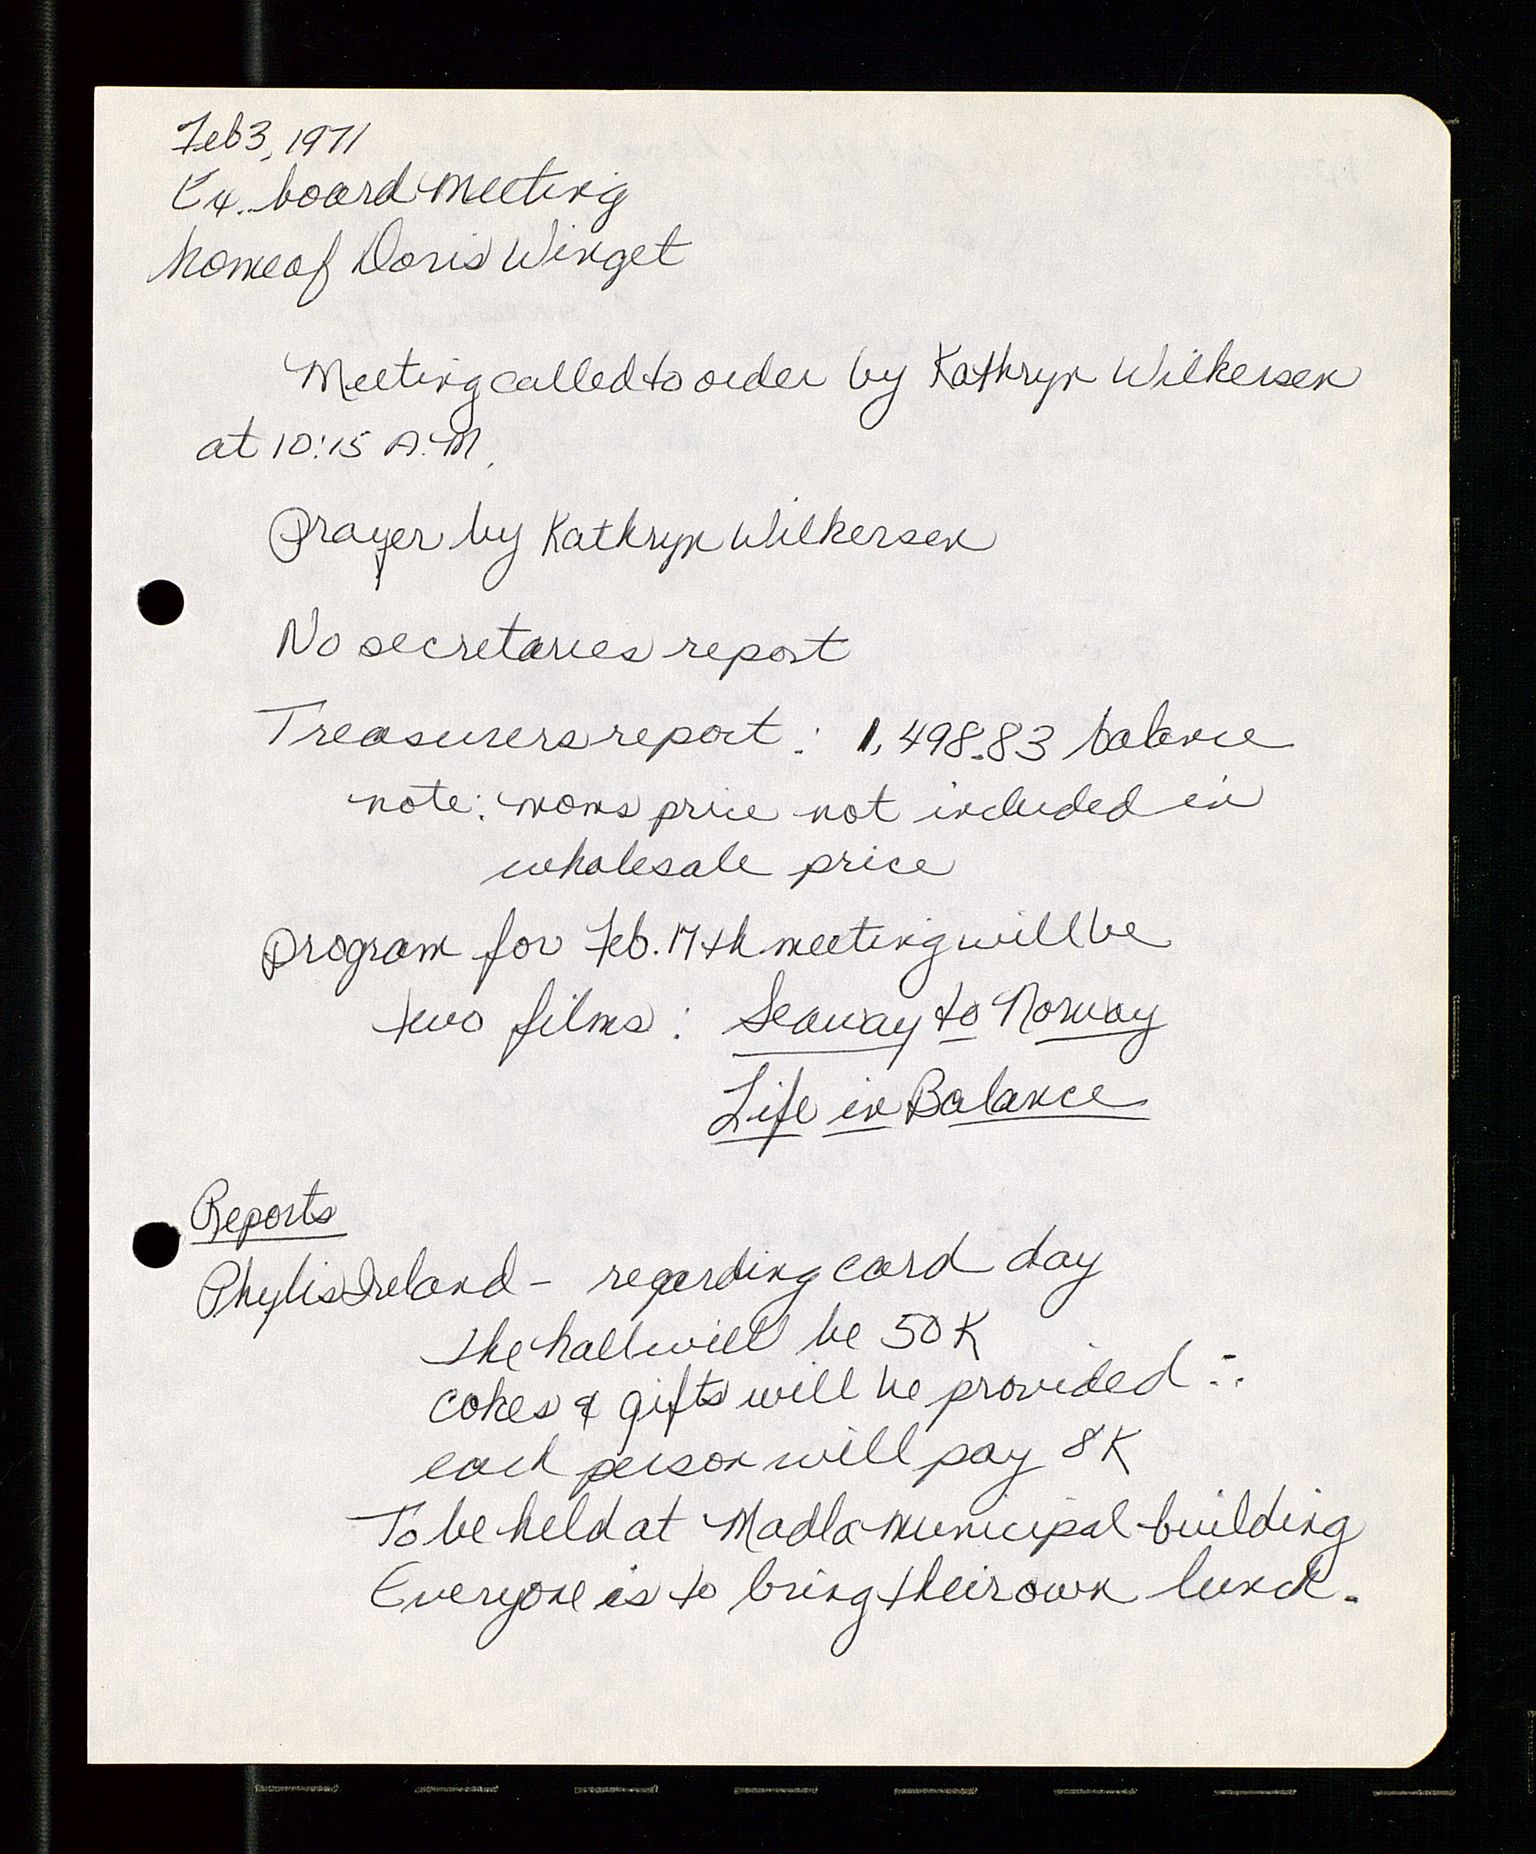 Feb 3, 1971
Ex. board meeting
home of Doris Winget
Meeting called to order by Kathryn Wilkersen
at 10:15 A.M.
Prayer by Kathryn Wilkersen
No secretaries report
Treasurers report: 1,498.83 balance
note: moms price not included in
wholesale price
Program for Feb. 17th meeting will be
two films: Seaway to Norway
Life in Balance
Reports
Phylis Ireland - regarding card day
the hall will be 50 K
cokes & gifts will be provided ∴
each person will pay 8 K
To be held at Madla municipal building
Everyone is to bring their own lunch.